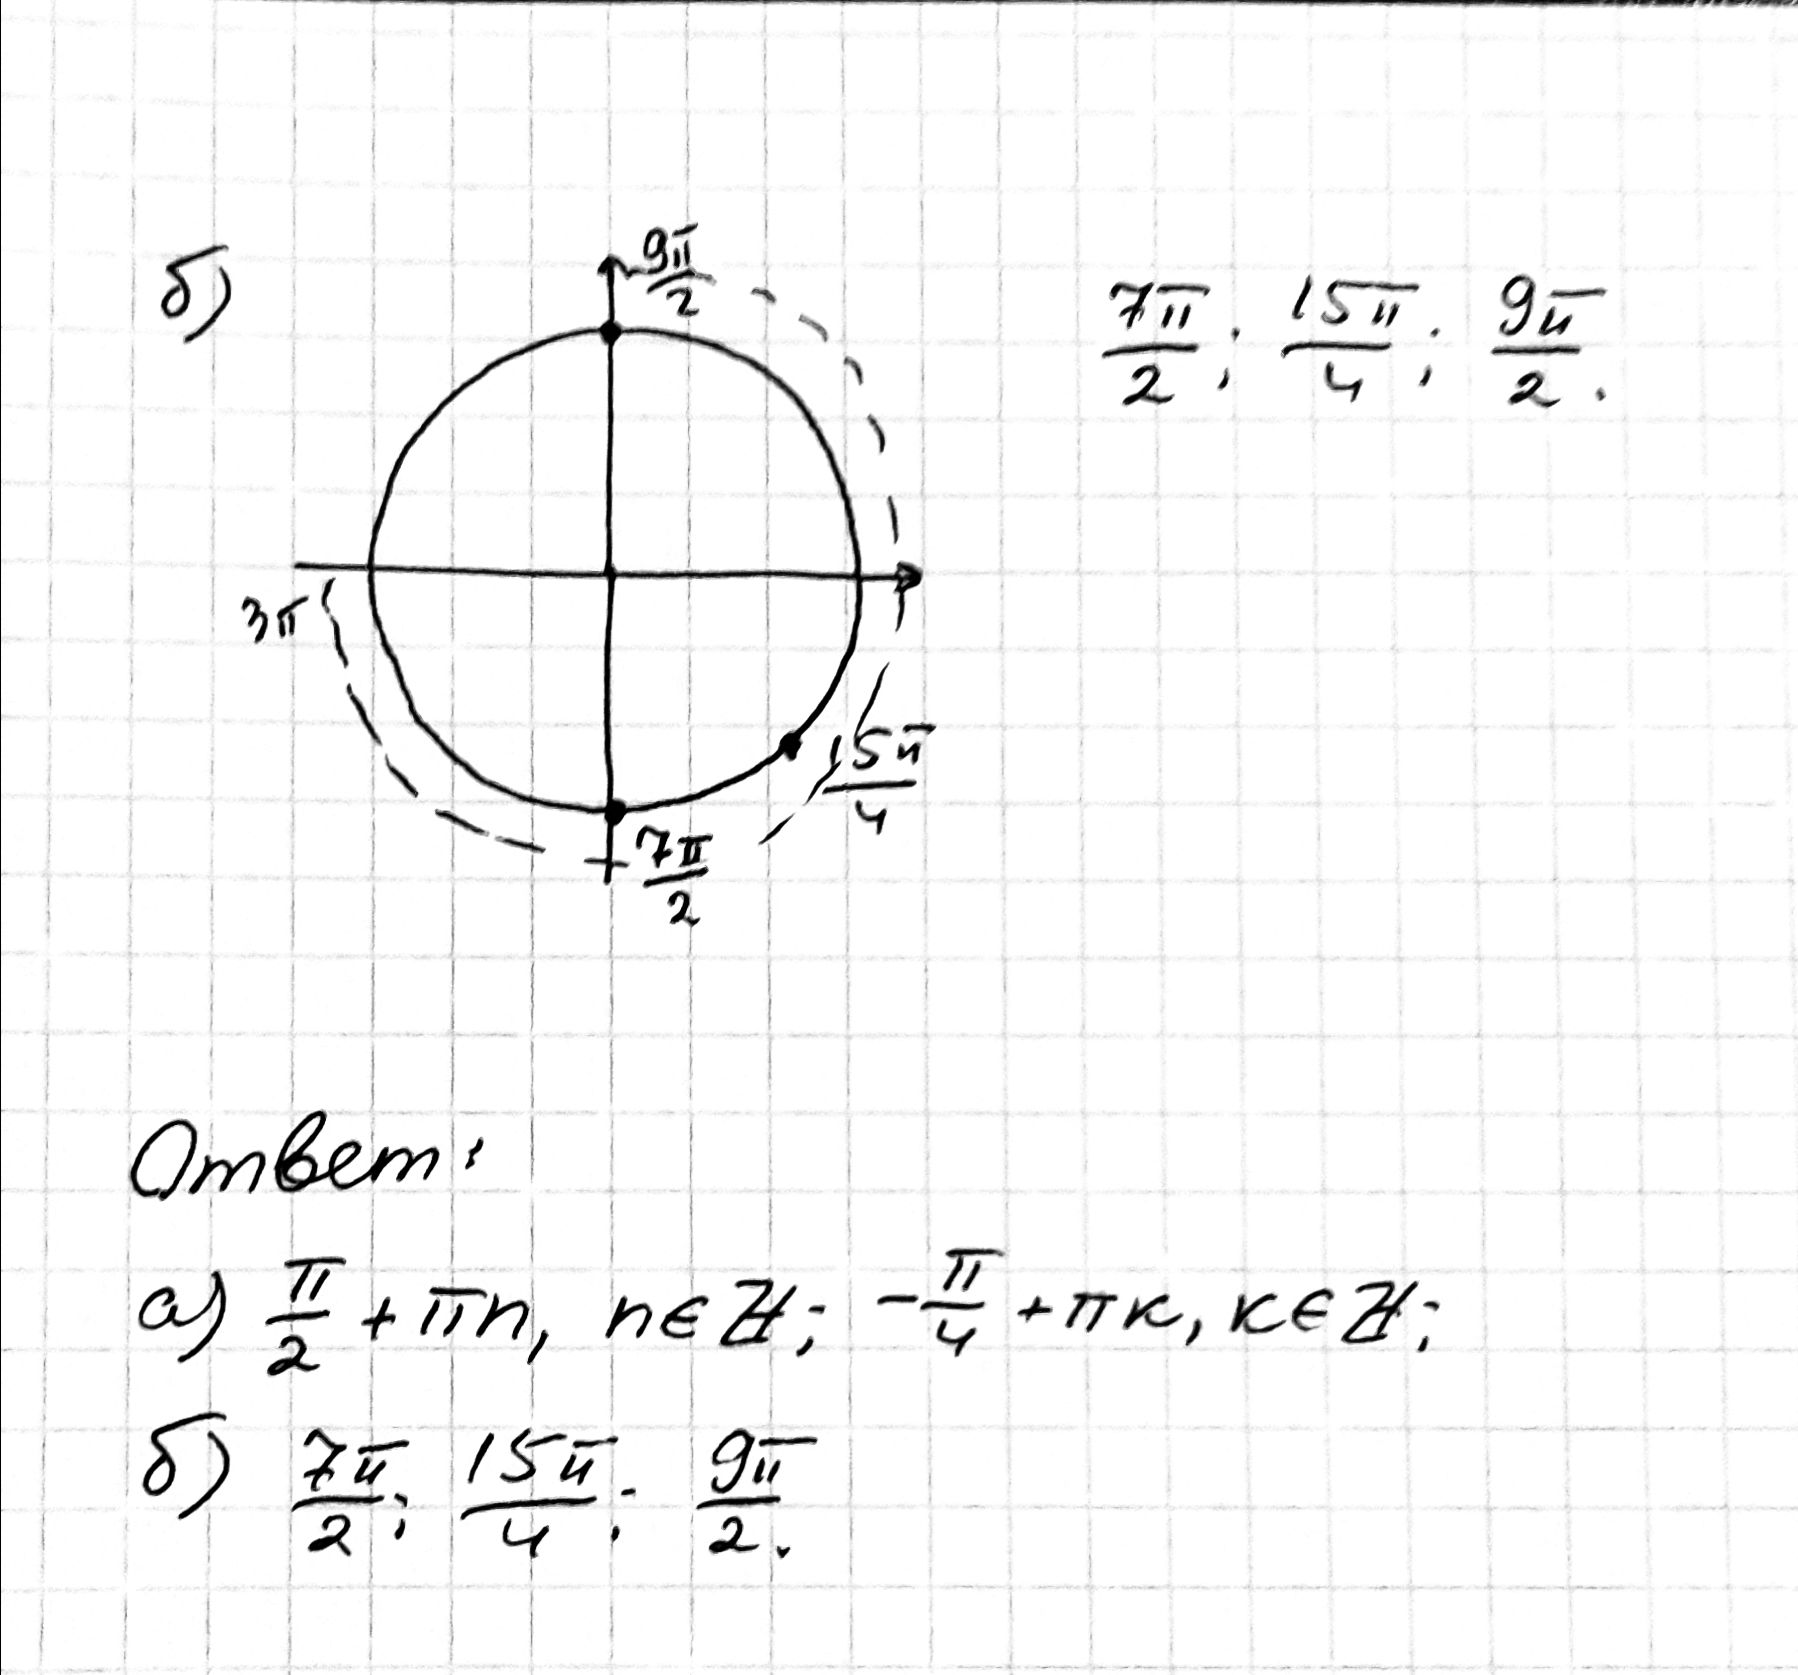 б)
9π/2
7π/2; 15π/4; 9π/2.
3π
15π/4
7π/2
Ответ:
а) π/2 + πn, n∈ℤ; -π/4 + πк, к∈ℤ;
б) 7π/2; 15π/4; 9π/2.